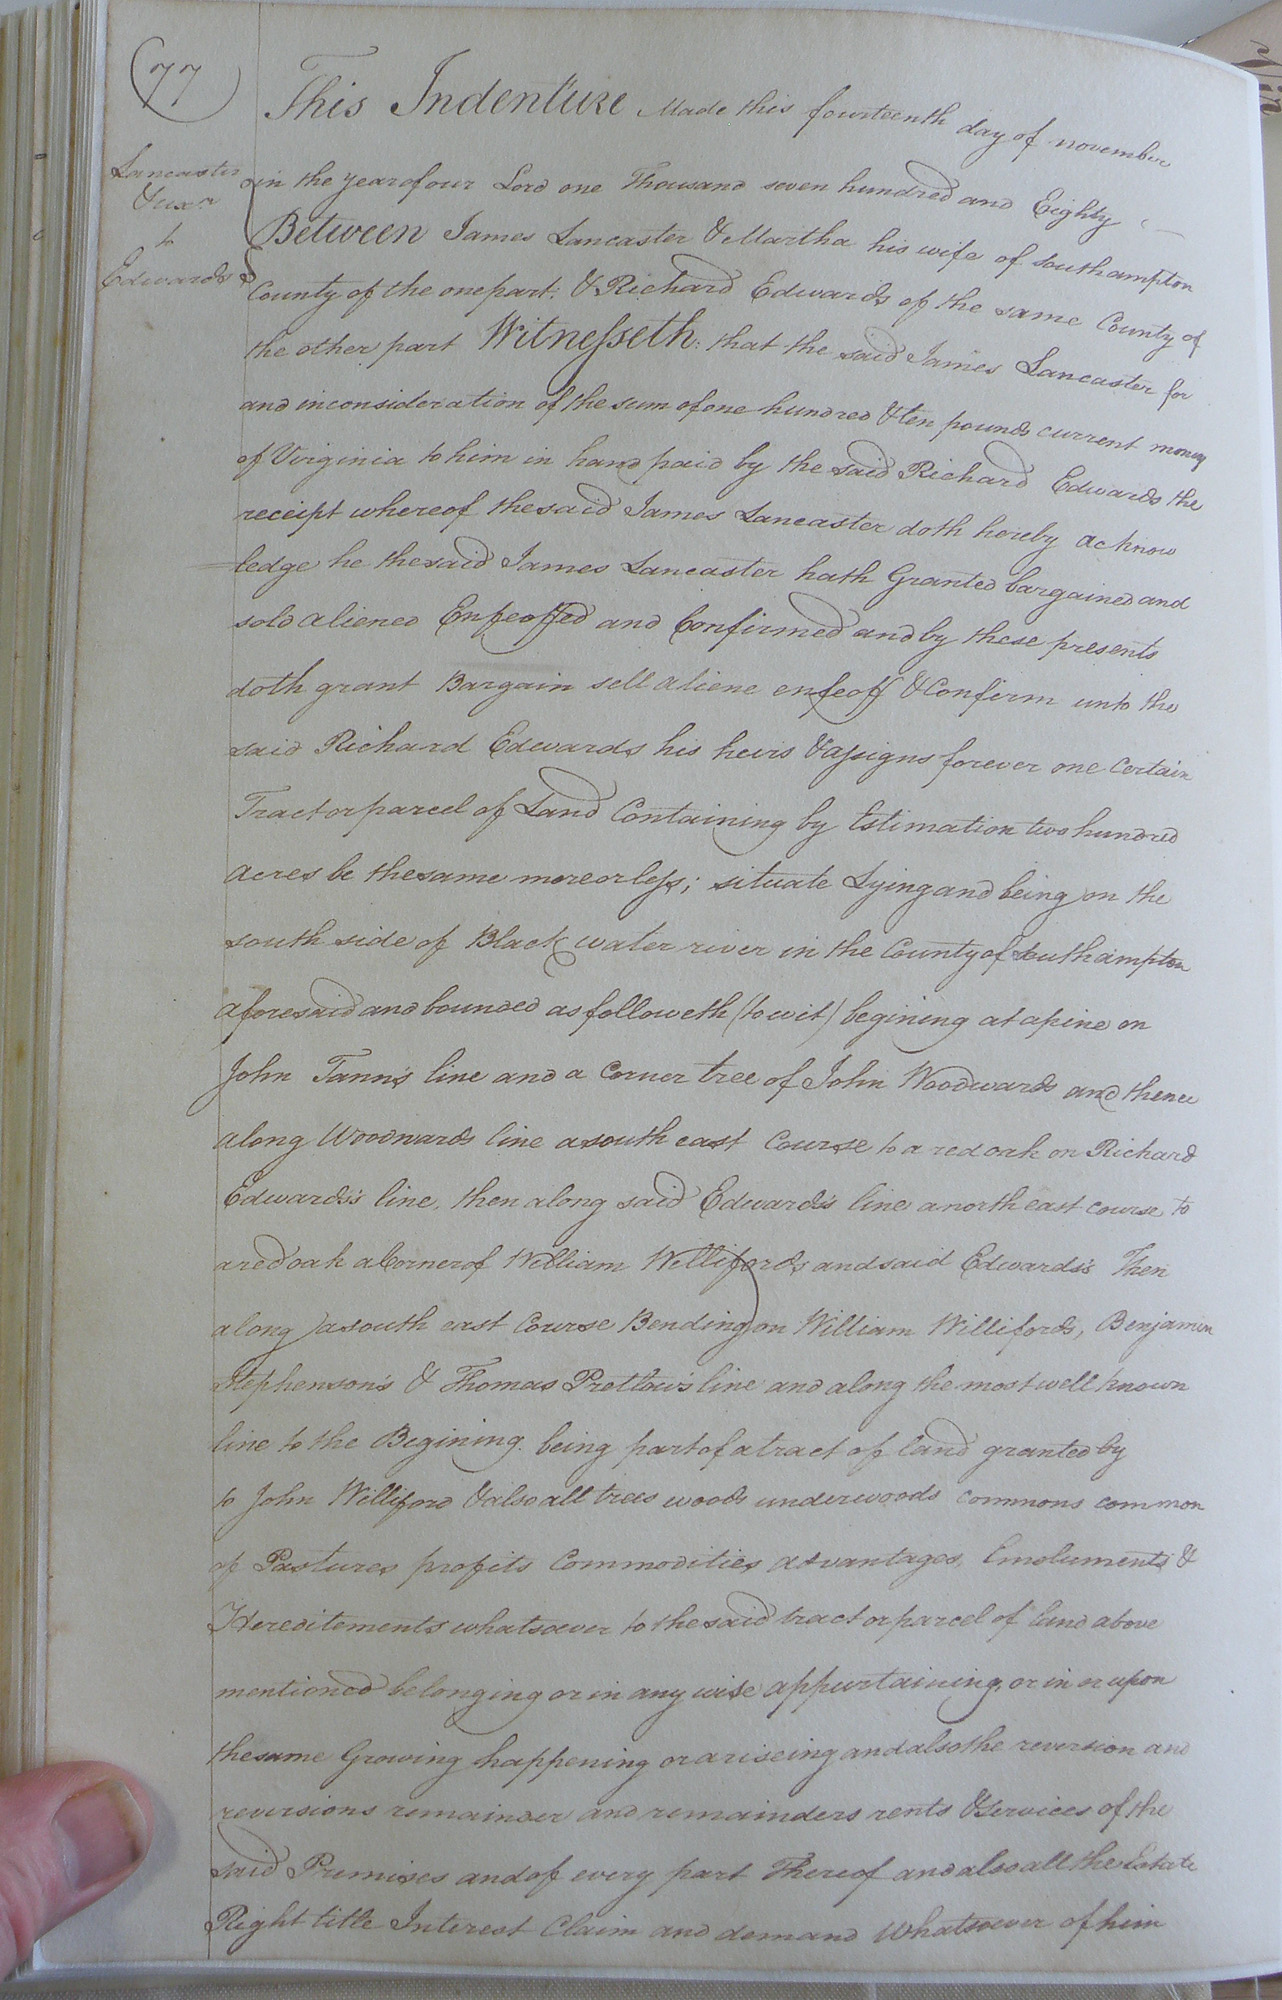 77
This Indenture Made this fourteenth day of november
Lancaster
& uxr
to
Edwards
in the year of our Lord one Thousand seven hundred and Eighty
Between James Lancaster & Martha his wife of Southampton
County of the one part: & Richard Edwards of the same County of
the other part Witnesseth: that the said James Lancaster for
and in consideration of the sum of one hundred & ten pounds current money
of Virginia to him in hand paid by the said Richard Edwards the
receipt whereof the said James Lancaster doth hereby acknow
ledge he the said James Lancaster hath Granted bargained and
sold aliened Enfeoffed and Confirmed and by these presents
doth grant Bargain sell aliene enfeoff & Confirm unto the
said Richard Edwards his heirs & assigns forever one Certain
Tract or parcel of Land Containing by Estimation two hundred
acres be the same more or less; situate Lying and being on the
south side of Black water river in the County of Southampton
aforesaid and bounded as followeth (to wit) begining at a pine on
John Tann's line and a Corner tree of John Woodwards and thence
along Woodwards line a south east Course to a red oak on Richard
Edwards's line, then along said Edwards's line a north east course to
a red oak a Corner of William Willifords and said Edwards's Then
along a south east Course Bending on William Willifords, Benjamin
Stephenson's & Thomas Pretlow's line and along the most well known
line to the Begining. being part of a tract of land granted by
to John Williford & also all trees woods underwoods commons common
of Pastures profits Commodities advantages, Emoluments &
Hereditements whatsoever to the said tract or parcel of land above
mentioned belonging or in any wise appurtaining, or in or upon
the same Growing happening or ariseing and also the reversion and
reversions remainder and remainders rents & Services of the
said Premises and of every part Thereof and also all the Estate
Right title Interest Claim and demand whatsoever of him